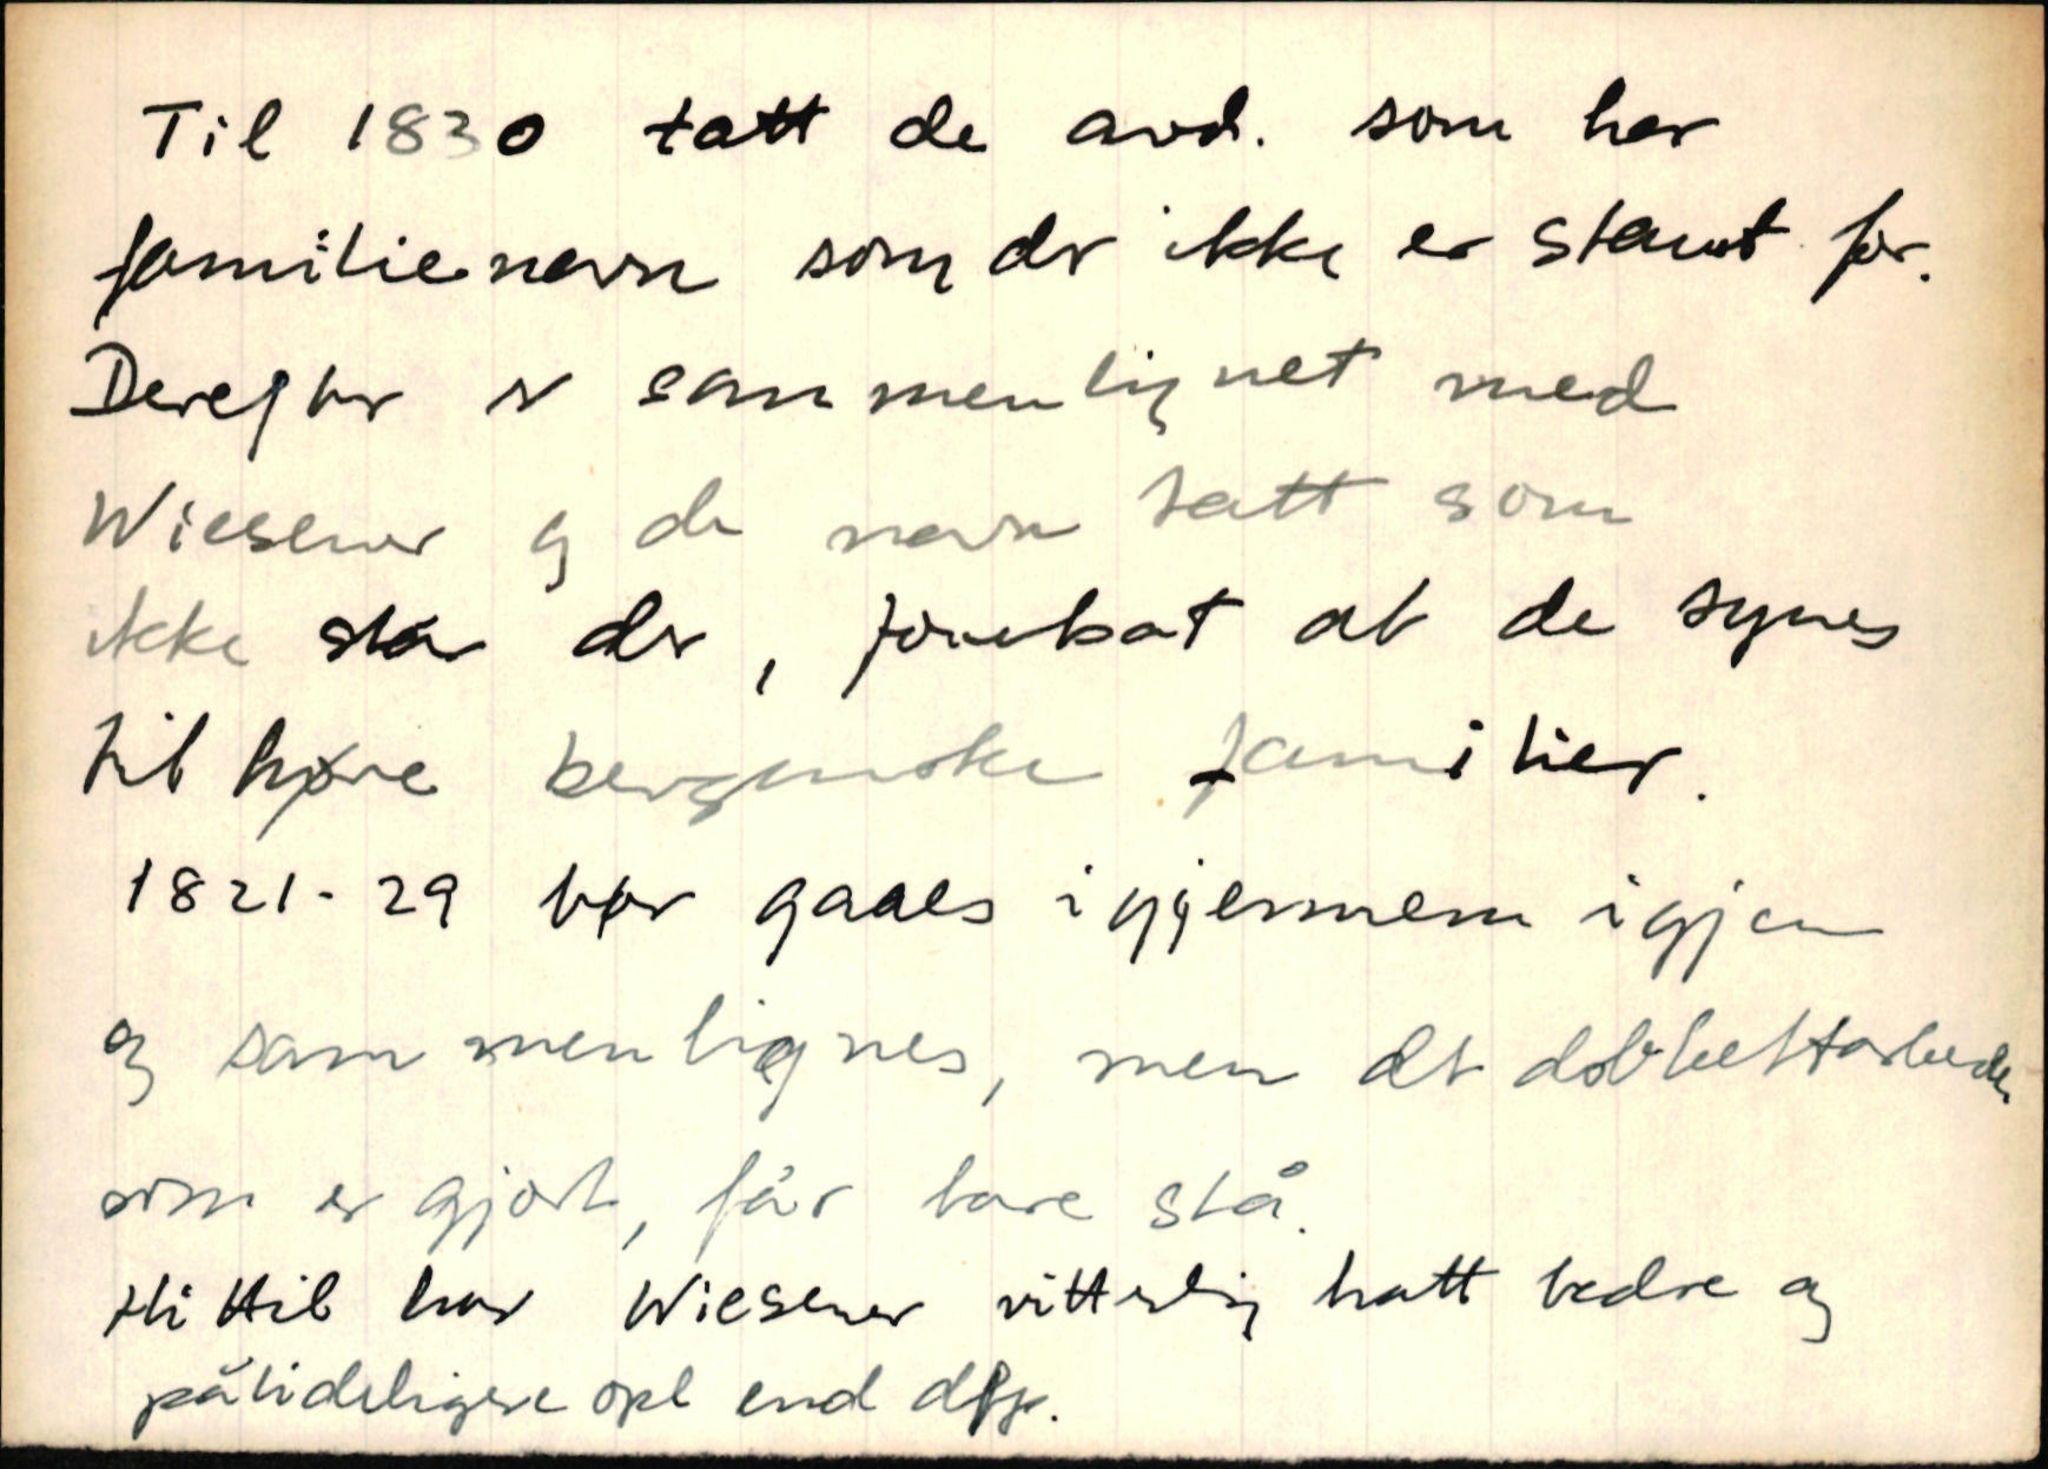 Til 1830 tatt de avd. som har
familienavn som der ikke er stamt for.
Derefter er sammenlignet med
Wiesener og de navn tatt som
ikke står der, forutsat at de synes
tilhøre bergenske familier.
1821-29 bør gaaes igjennem igjen
og sammenlignes, men det dobbeltarbeide
som er gjort, får bare stå.
Hittil har Wiesener vitterlig hatt bedre og
pålideligere opl end